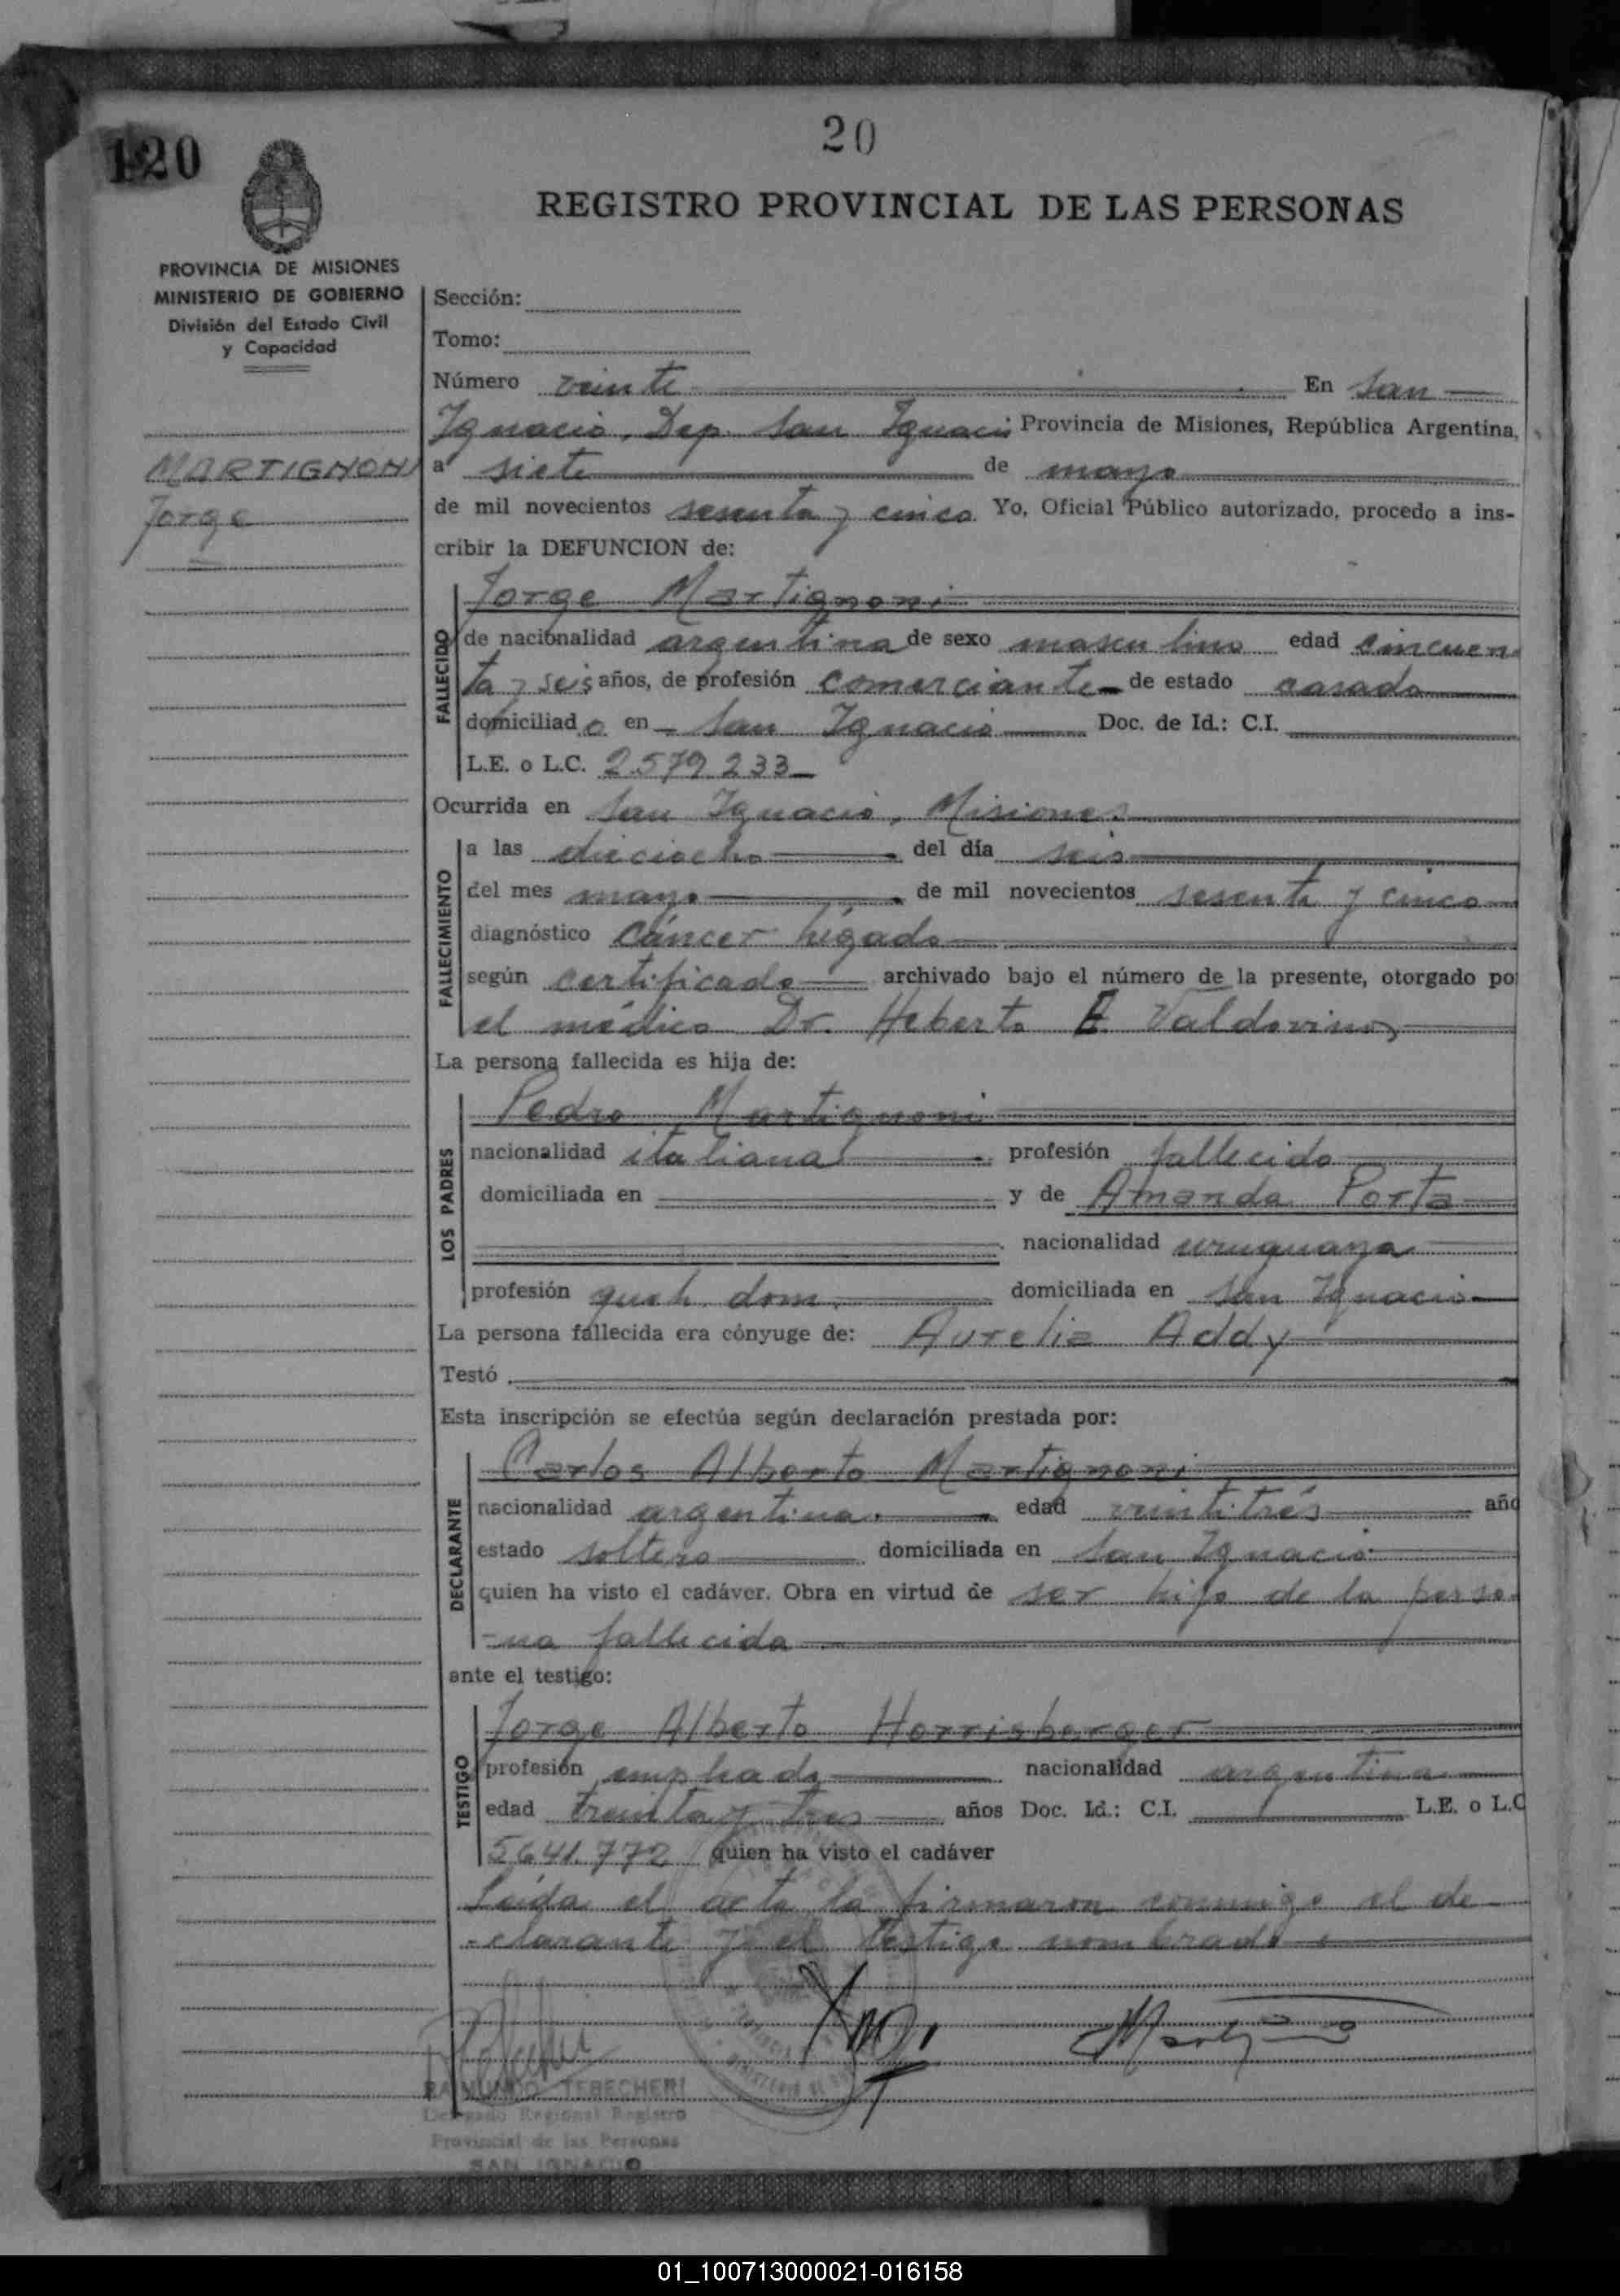 120
20
REGISTRO PROVINCIAL DE LAS PERSONAS
PROVINCIA DE MISIONES
MINISTERIO DE GOBIERNO
División del Estado Civil
y Capacidad
MARTIGNONI
Jorge
Sección:
Tomo:
Número veinte En San
Ignacio, Dep. San Ignacio Provincia de Misiones, República Argentina,
a siete de mayo
de mil novecientos sesenta y cinco. Yo, Oficial Público autorizado, procedo a ins-
cribir la DEFUNCION de:
FALLECIDO
Jorge Martignoni
de nacionalidad argentina de sexo masculino edad cincuen
ta y seis años, de profesión comerciante de estado casado
domiciliado en San Ignacio Doc. de Id.: C.I.
L.E. o L.C. 2.579.233
Ocurrida en San Ignacio, Misiones
FALLECIMIENTO
a las dieciocho del día seis
del mes mayo de mil novecientos sesenta y cinco
diagnóstico Cáncer hígado
según certificado archivado bajo el número de la presente, otorgado po
el médico Dr. Heberto E. Valdovinos
La persona fallecida es hija de:
LOS PADRES
Pedro Martignoni
nacionalidad italiana profesión fallecido
domiciliada en y de Amanda Porta
nacionalidad uruguaya
profesión queh. dom. domiciliada en San Ignacio
La persona fallecida era cónyuge de: Aurelia Addy
Testó
Esta inscripción se efectúa según declaración prestada por:
DECLARANTE
Carlos Alberto Martignoni
nacionalidad argentina. edad veintitrés año
estado soltero domiciliada en San Ignacio
quien ha visto el cadáver. Obra en virtud de ser hijo de la perso
-na fallecida
ante el testigo:
TESTIGO
Jorge Alberto Horrisberger
profesión empleado nacionalidad argentina
edad treinta y tres años Doc. Id.: C.I. L.E. o L.C
5.641.772 quien ha visto el cadáver
Leída el acta la firmaron conmigo el de
-clarante y el testigo nombrado
RAIMUNDO TEBECHERI
Delegado Regional Registro
Provincial de las Personas
SAN IGNACIO
01_100713000021-016158